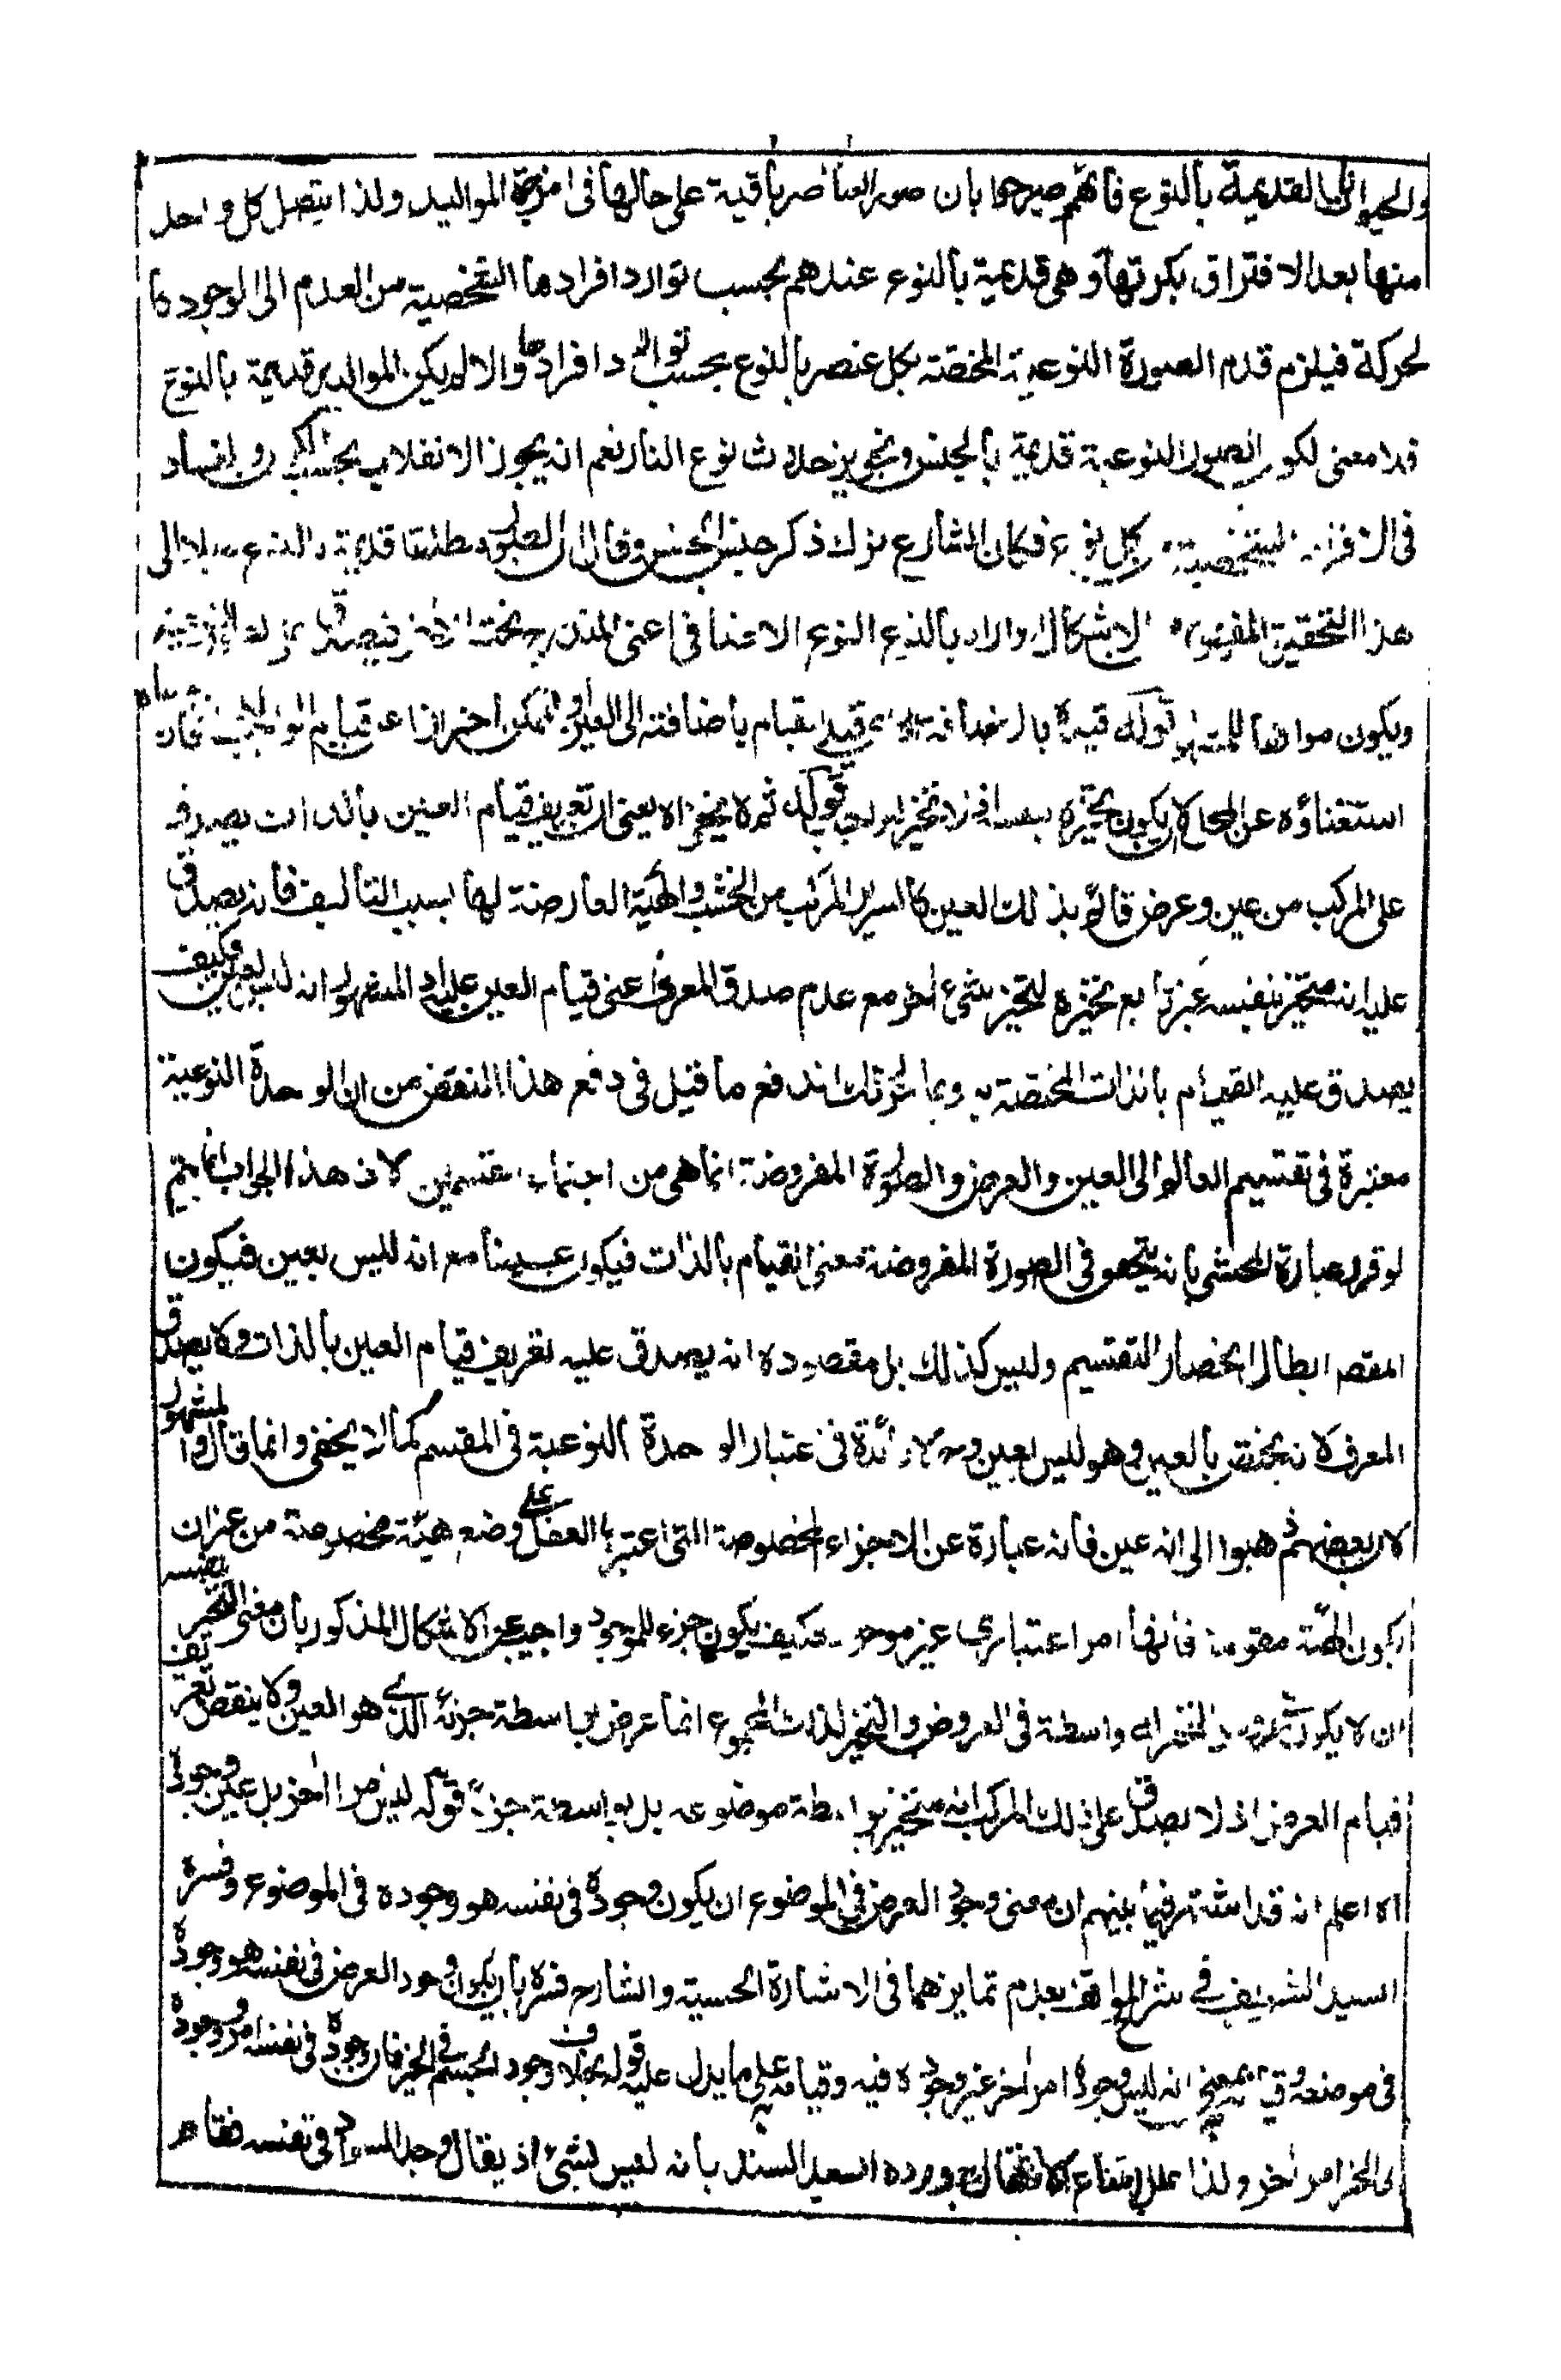 والحيوانى القديمة بالنوع فانهم صرحوا بان صور العناصر باقية على حالها فى امزجة المواليد ولذا يتصل كل واحد
منها بعد الافتراق بكرتها وهى قديمة بالنوع عندهم بحسب توارد افرادها الشخصية من العدم الى الوجود كا
لحركة فيلزم قدم الصورة النوعية المختصة بكل عنصر بالنوع بحسب توارد افرادها والا لم يكن المواليد قديمة بالنوع
فلا معنى لكون الصور النوعية قديمة بالجنس وتجويز حدوث نوع النار نعم انه يجوز الانقلاب بحسب الكون والفساد
فى الافراد الشخصية بكل نوع فكان الشارح ترك ذكر الجنس وقال ان الصور مطلقا قديمة بالنوع
هذا التحقيق الاشكال واراد بالنوع النوع الاضافى اعنى المندرج تحت
ويكون موافقا للمشهور قوله قيده بالاضافة اه اى قيد القيام باضافته الى العين الممكن احترازا عن قيام الواجب فان
استغناؤه عن المحل لا يكون تحيزه بنفسه قوله ثمه لا يخفى اه يعنى ان تعريف قيام العين بالذات يصدق
على المركب من عين وعرض قائم بذلك العين كالسرير المركب من الخشب والهيئة العارضة لها بسبب التأليف فانه يصدق
عليه انه متحيز بنفسه غير تابع تحيزه لتحيز شىء اخر مع عدم صدق المعرف اعنى قيام العين عليه اذ المشهور انه ليس بعين فكيف
يصدق عليه القيام بالذات المختصة به وبما حررنا لك اندفع ما قيل فى دفع هذا النقض من ان الوحدة النوعية
معتبرة فى تقسيم العالم الى العين والعرض والصورة المفروضة انما هى من اجتماع القسمين لان هذا الجواب انما يتم
لو قرر عبارة المحشى بانه يتحقق فى الصورة المفروضة معنى القيام بالذات فيكون عينا مع انه ليس بعين فيكون
المقصد ابطال انحصار التقسيم وليس كذلك بل مقصوده انه يصدق عليه تعريف قيام العين بالذات ولا يصدق
المعرف لانه يختص بالعين وهو ليس بعين ولا فائدة فى اعتبار الوحدة النوعية فى المقسم كما لا يخفى وانما قال والمشهور
لان بعضهم ذهبوا الى انه عين فانه عبارة عن الاجزاء المخصوصة التى اعتبرها العقل على وضع هيئة مخصوصة من غير ان
يكون الهيئة مقومة فانها امر اعتبارى غير موجود فكيف يكون جزء للموجود واجيب عن الاشكال المذكور بان معنى التحيز بنفسه
ان لا يكون واسطة فى العروض والتحيز لذلك المجموع انما عرض بواسطة جزئه الذى هو العين ولا ينقض تعريف
قيام العرض اذ لا يصدق على ذلك المركب انه متحيز بواسطة موضوعه بل بواسطة جزئه قوله ليس امرا اخر بل عين وجوده فى
اه اعلم انه قد اشتهر فيما بينهم ان معنى وجود العرض فى الموضوع ان يكون وجوده فى نفسه هو وجوده فى الموضوع وفسره
السيد الشريف فى شرح المواقف بعدم تمايزهما فى الاشارة الحسية والشارح فسره بان يكون وجود العرض فى نفسه هو وجوده
فى موضعه وقيامه بمعنى انه ليس وجوده امر اخر غير وجوده فيه وقيامه به على ما يدل عليه قوله بخلاف وجود الجسم فى الحيز فان وجوده فى نفسه امر ووجوده
فى الحيز امر اخر ولذا علل امتناع الانتقال ورده السعيد السند بانه ليس بشىء اذ يقال وجد السواد فى نفسه فقام